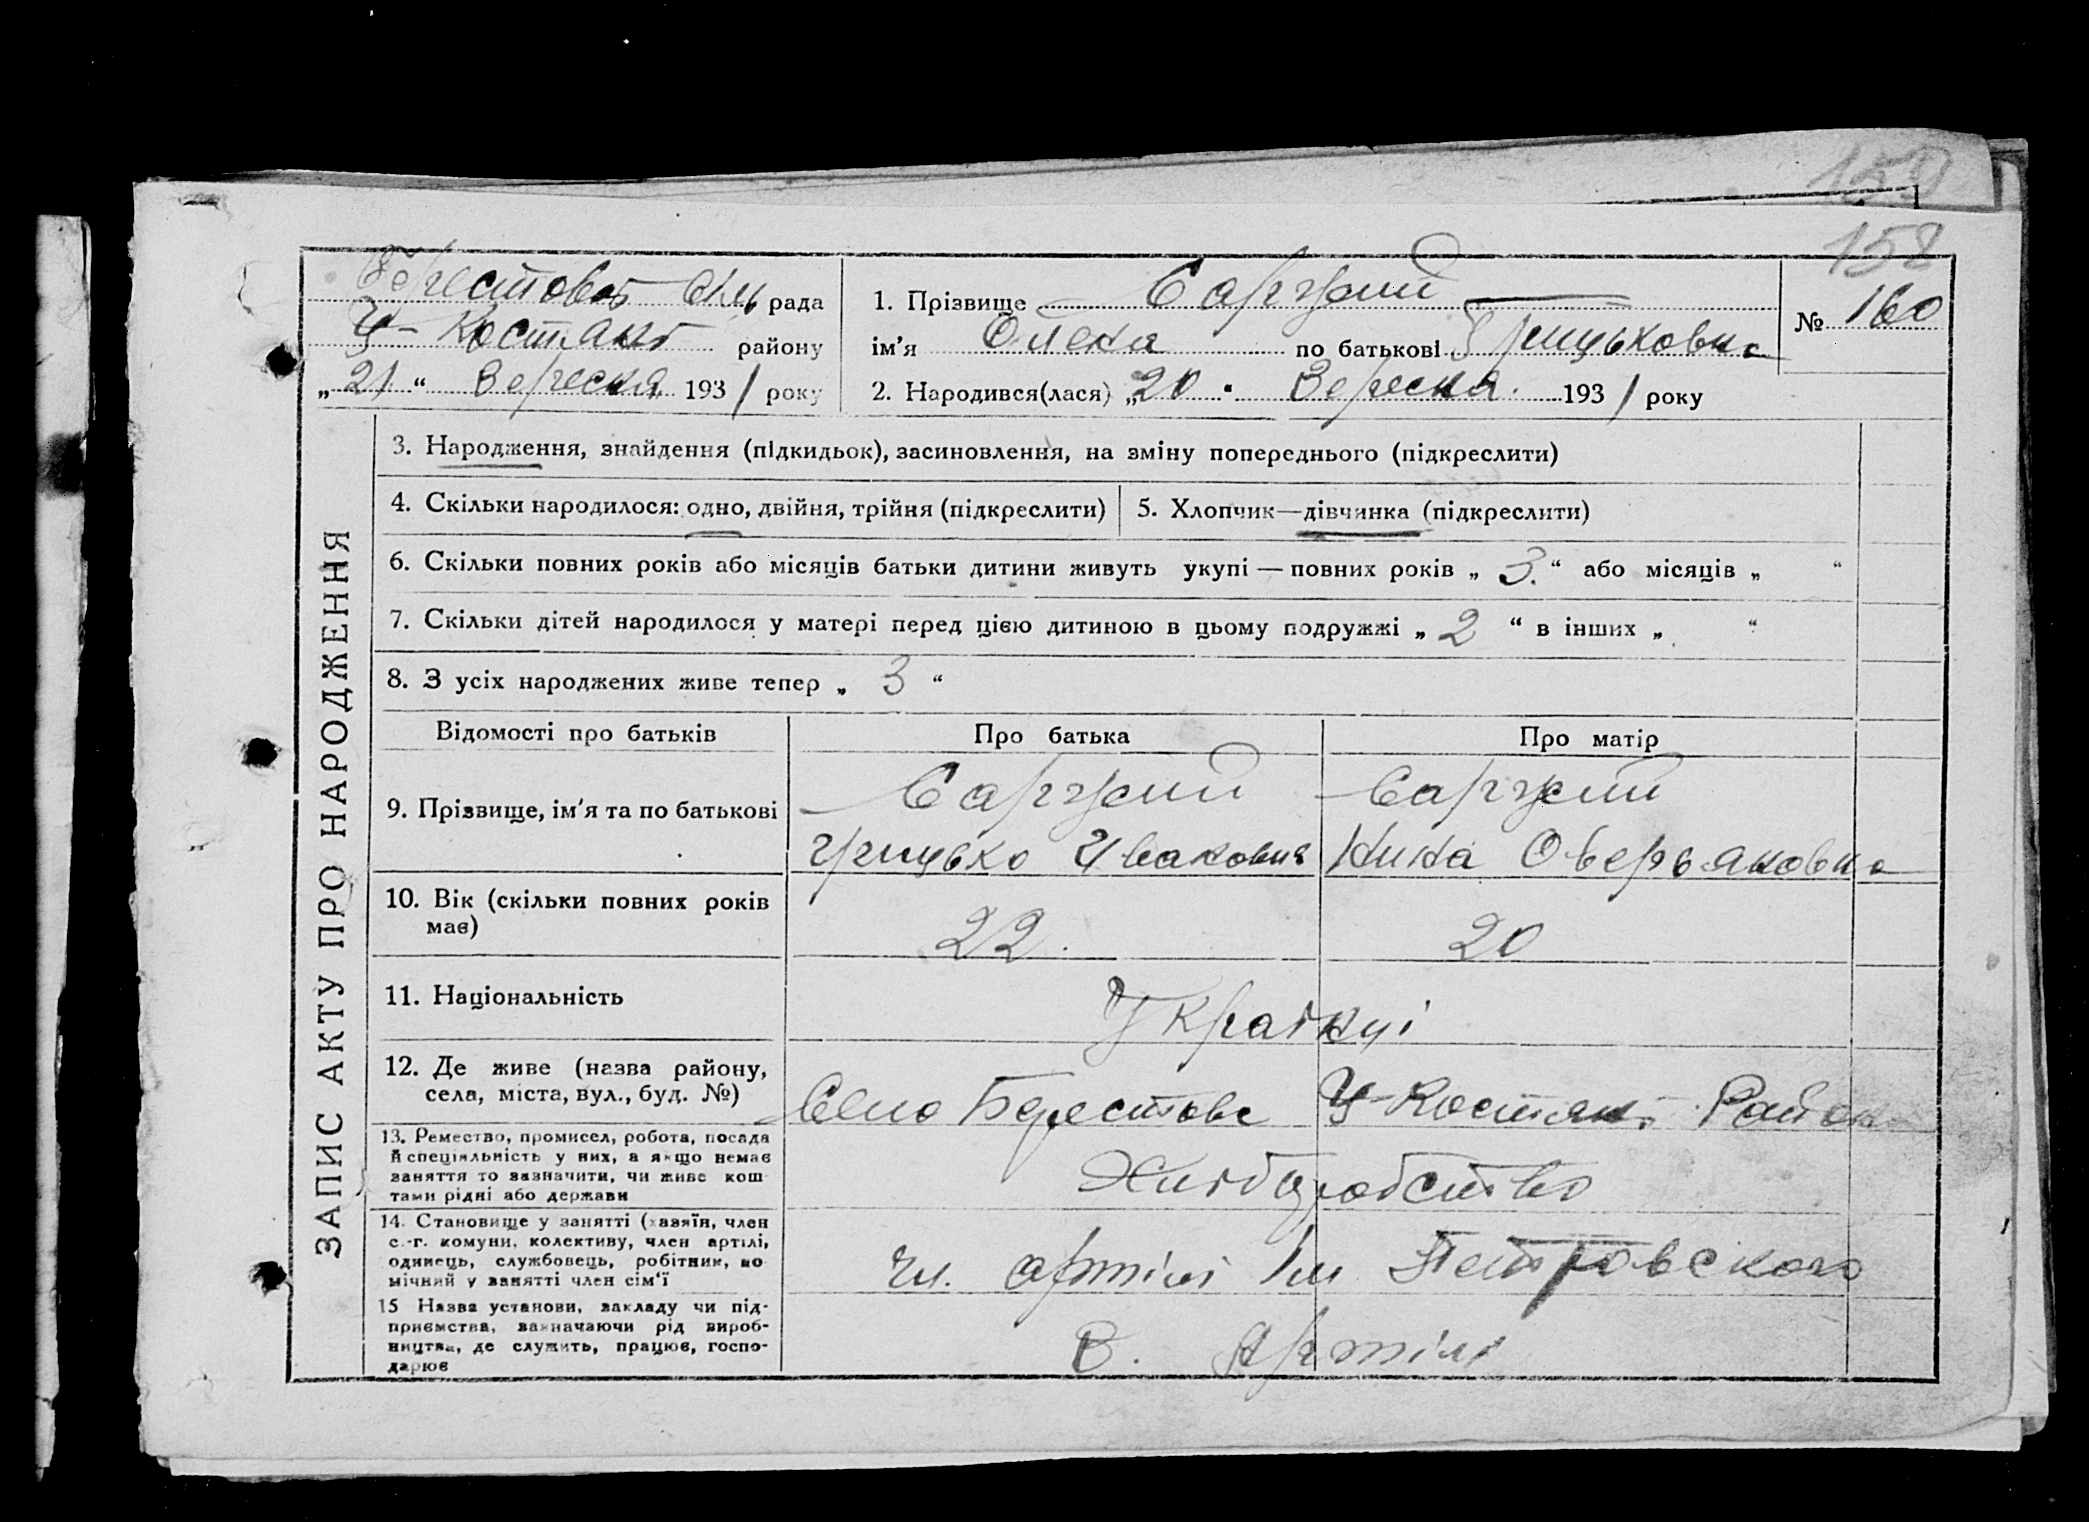 159
158
Берестов сіль рада
У-Костянт району
„21“ Вересня 1931 року
1. Прізвище
ім'я Олена по батькові Грицьковна
2. Народився(лася) „20“ Вересня 1931 року
№ 160
ЗАПИС АКТУ ПРО НАРОДЖЕННЯ
3. Народження, знайдення (підкидьок), засиновлення, на зміну попереднього (підкреслити)
4. Скільки народилося: одно, двійня, трійня (підкреслити)
5. Хлопчик—дівчинка (підкреслити)
6. Скільки повних років або місяців батьки дитини живуть укупі — повних років „3.“ або місяців „ “
7. Скільки дітей народилося у матері перед цією дитиною в цьому подружжі „2“ в інших „ “
8. З усіх народжених живе тепер „3“
Відомості про батьків
Про батька
Про матір
9. Прізвище, ім'я та по батькові
Грицько Иванович
Нина Оверьяновна
10. Вік (скільки повних років
має)
22.
20
11. Національність
Українці
12. Де живе (назва району,
села, міста, вул., буд. №)
Село Берестове У-Костянт. Район
13. Ремество, промисел, робота, посада
й спеціяльність у них, а якщо немає
заняття то зазначити, чи живе кош-
тами рідні або держави
Хліборобство
14. Становище у занятті (хазяїн, член
с.-г. комуни, колективу, член артілі,
одинець, службовець, робітник, по-
мічний у занятті член сім'ї
чл. артілі Ім Петровского
15 Назва установи, закладу чи під-
приємства, зазначаючи рід вироб-
ництва, де служить, працює, госпо-
дарює
В. Артілі